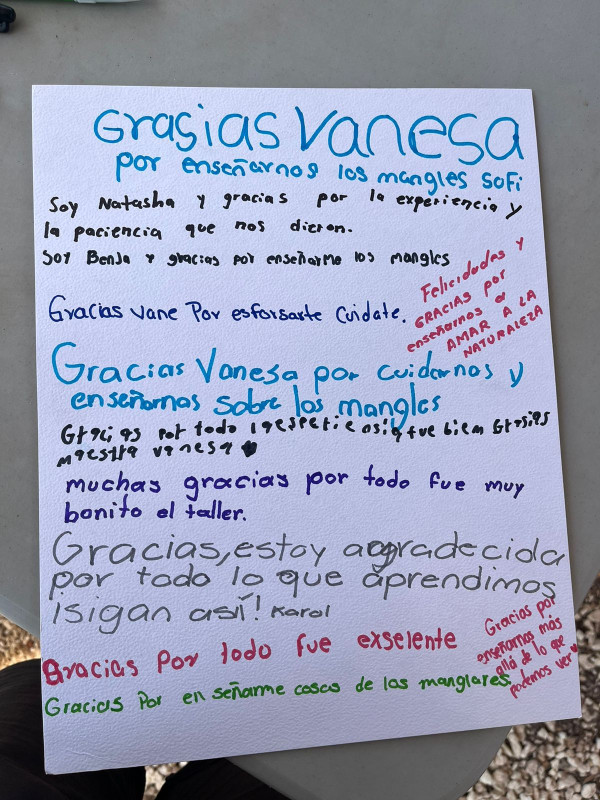 Grasias Vanesa
por enseñarnos los mangles Sofi
Soy Natasha y gracias por la experiencia y
la paciencia que nos dieron.
Soy Benja y gracias por enseñarme los mangles
Felicidades y
GRACIAS POR
enseñarnos a
AMAR A LA
NATURALEZA
Gracias vane Por esforsarte Cuidate.
Gracias Vanesa por cuidarnos y
enseñarnos sobre los mangles
Gracias por todo fue bien Grasias
maestra vanesa
muchas gracias por todo fue muy
bonito el taller.
Gracias, estoy agradecida
por todo lo que aprendimos
¡sigan así! Karol
Gracias Por todo fue exselente
Gracias por
enseñarnos más
allá de lo que
podemos ver
Gracias Por enseñarme cosas de los manglares.